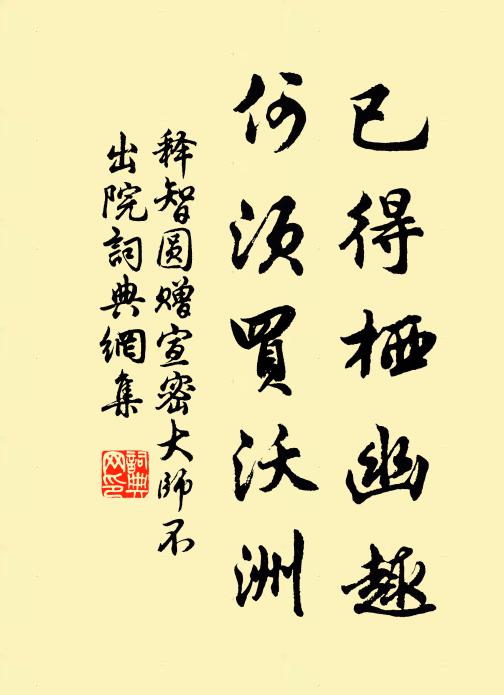 已得栖幽趣
何须買沃洲
释智圆赠宣密大师不
出院詞典網集
詞典网印